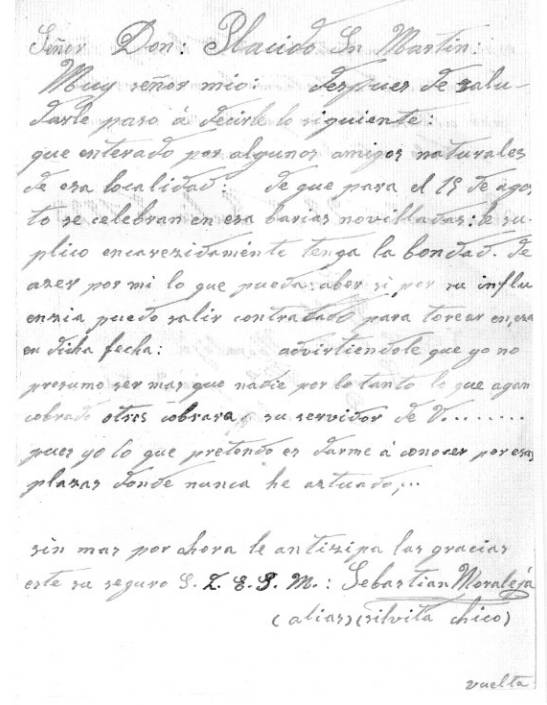 Señor Don: Placido Sn Martin:
Muy señor mio: despues de salu-
darle paso á decirle lo siguiente:
que enterado por algunos amigos naturales
de esa localidad: de que para el 15 de agos
to se celebran en esa barias novilladas: le su-
plico encarezidamente tenga la bondad. de
azer por mi lo que pueda saber si por su influ
enzia puedo salir contratado para torear en esa
en dicha fecha: advirtiendole que yo no
presumo ser mas que nadie por lo tanto lo que agan
cobrado otros cobrara su servidor de V........
pues yo lo que pretendo es darme á conozer por esas
plazas donde nunca he aztuado,...
sin mas por ahora le antizipa las gracias
este su seguro S. Q. E. S. M.: Sebastian Moraleja
(alias) (silvita chico)
vuelta